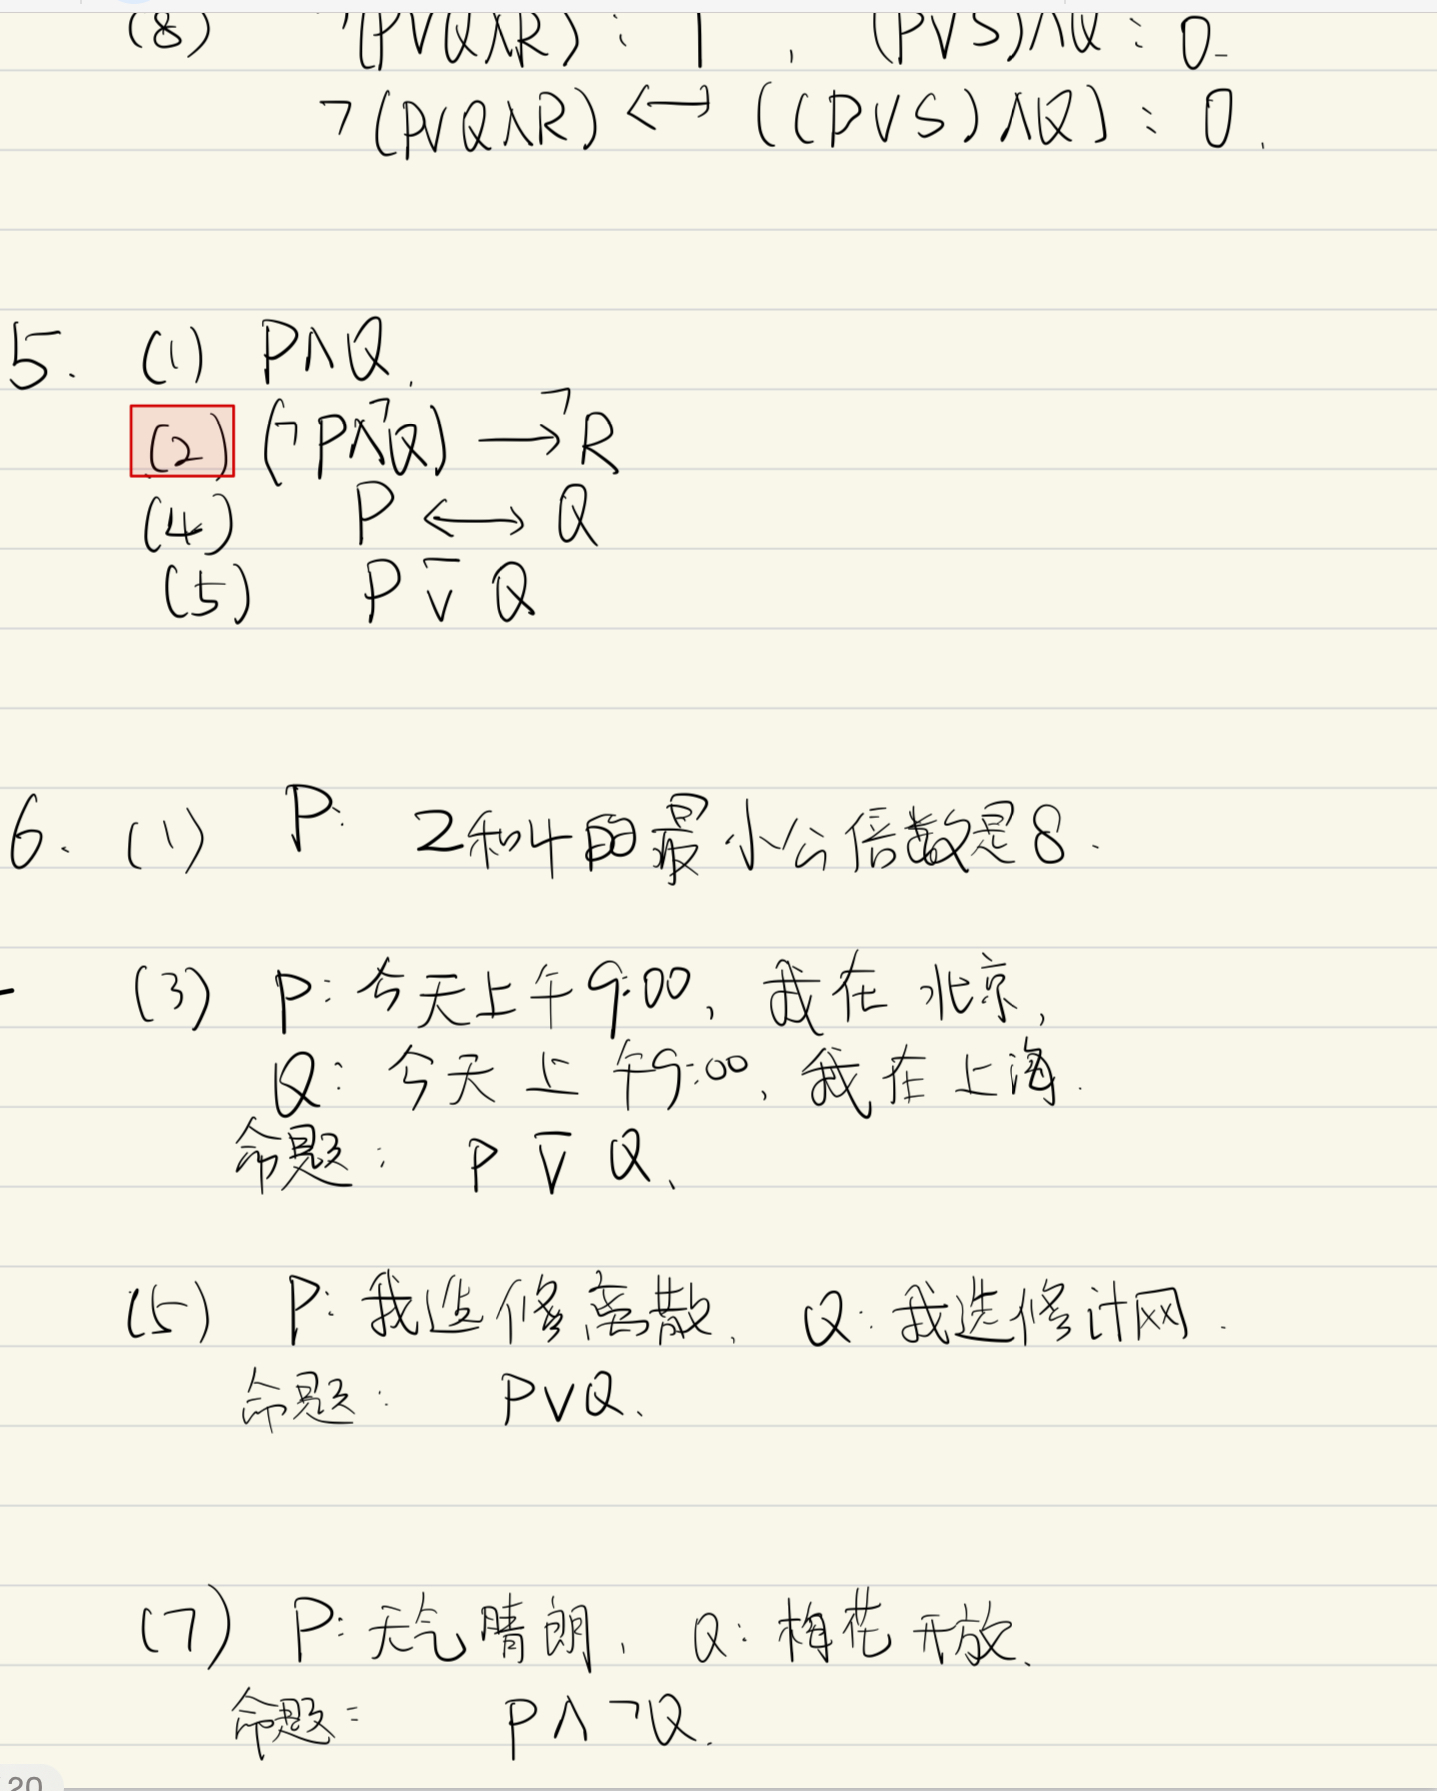 (8) ¬(P∨Q∧R) : 1 , (P∨S)∧Q : 0.
¬(P∨Q∧R) ↔ ((P∨S)∧Q) : 0.
5. (1) P∧Q.
(2) (¬P∧¬Q) → ¬R
(4) P ↔ Q
(5) P ⊽ Q
6. (1) P: 2和4的最小公倍数是8.
(3) P: 今天上午9:00, 我在北京,
Q: 今天上午9:00, 我在上海.
命题: P ⊽ Q.
(5) P: 我选修离散, Q: 我选修计网.
命题: P∨Q.
(7) P: 天气晴朗, Q: 梅花开放.
命题: P∧¬Q.
20